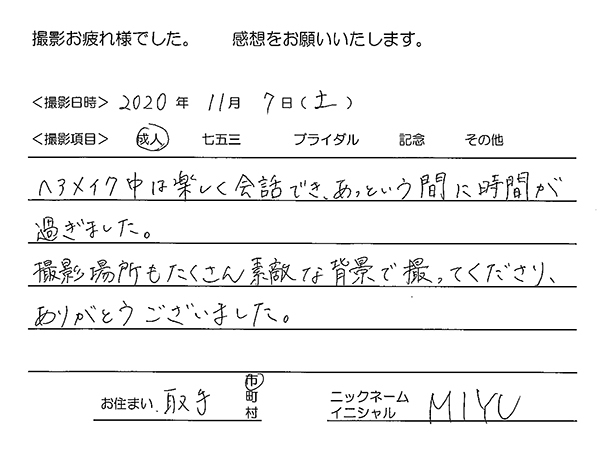 撮影お疲れ様でした。 感想をお願いいたします。
＜撮影日時＞ 2020 年 11 月 7 日 (土)
＜撮影項目＞ 成人 七五三 ブライダル 記念 その他
ヘアメイク中は楽しく会話でき、あっという間に時間が
過ぎました。
撮影場所もたくさん素敵な背景で撮ってくださり、
ありがとうございました。
お住まい 取手 市 町 村 ニックネーム イニシャル MIYU